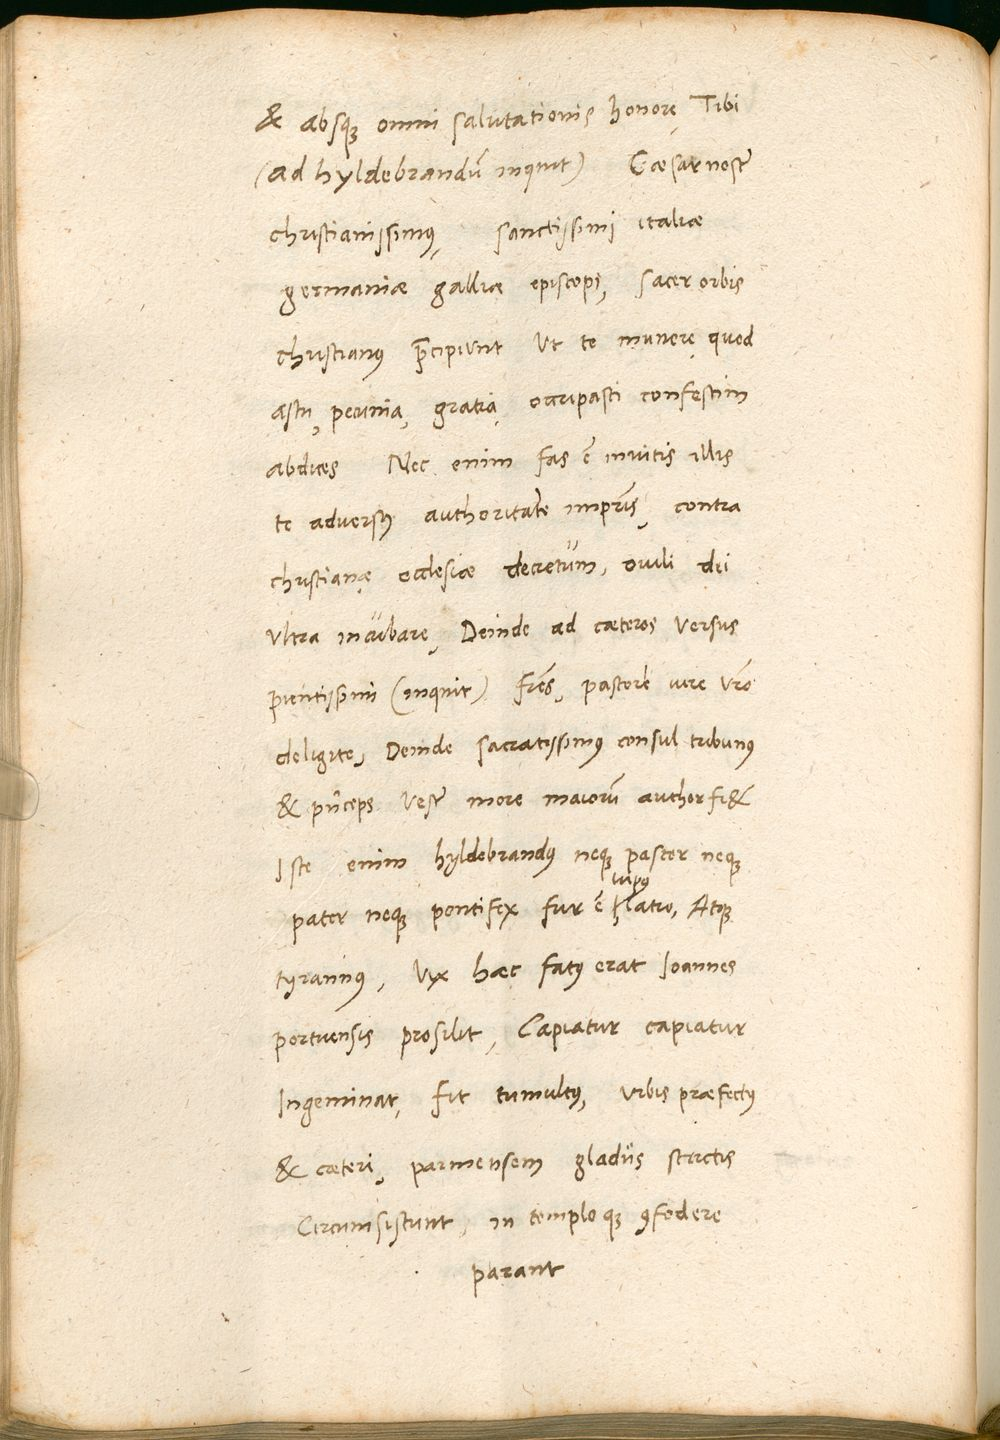 & absq̨ omni salutationis honore, Tibi
(ad hyldebrandū inquit) Cæsar nosť
christianissimꝰ, sanctissimi italiæ
germaniæ galliæ episcopi, sacer orbis
christianus p̄cipiunt Ut te munere, quod
astu, pecunia, gratia, occupasti confestim
abdices Nec enim fas ē inuitis illis
te aduersꝰ authoritatē impr̄is, contra
christianæ ecclesiæ decretum, ouili dei
ultra incubare, Deinde ad cæteros versus
pientissimi (inquit) fr̄es, pastorē vere vr̄o
deligite, Deinde sacratissimꝰ consul tribunꝰ
& pn̄ceps vesť more maiorū author fi&
Iste enim hyldebrandꝰ neq̨ pastor neq̨
pater neq̨ pontifex fur ē lupꝰ latro, Atq̨
tyrannꝰ, Vix hæc fatꝰ erat Ioannes
portuensis prosilit, Capiatur capiatur
Ingeminat, fit tumultꝰ, vrbis præfectꝰ
& cæteri, parmensem gladijs strictis
Circumsistunt, in templo q̨ ꝯfodere
parant